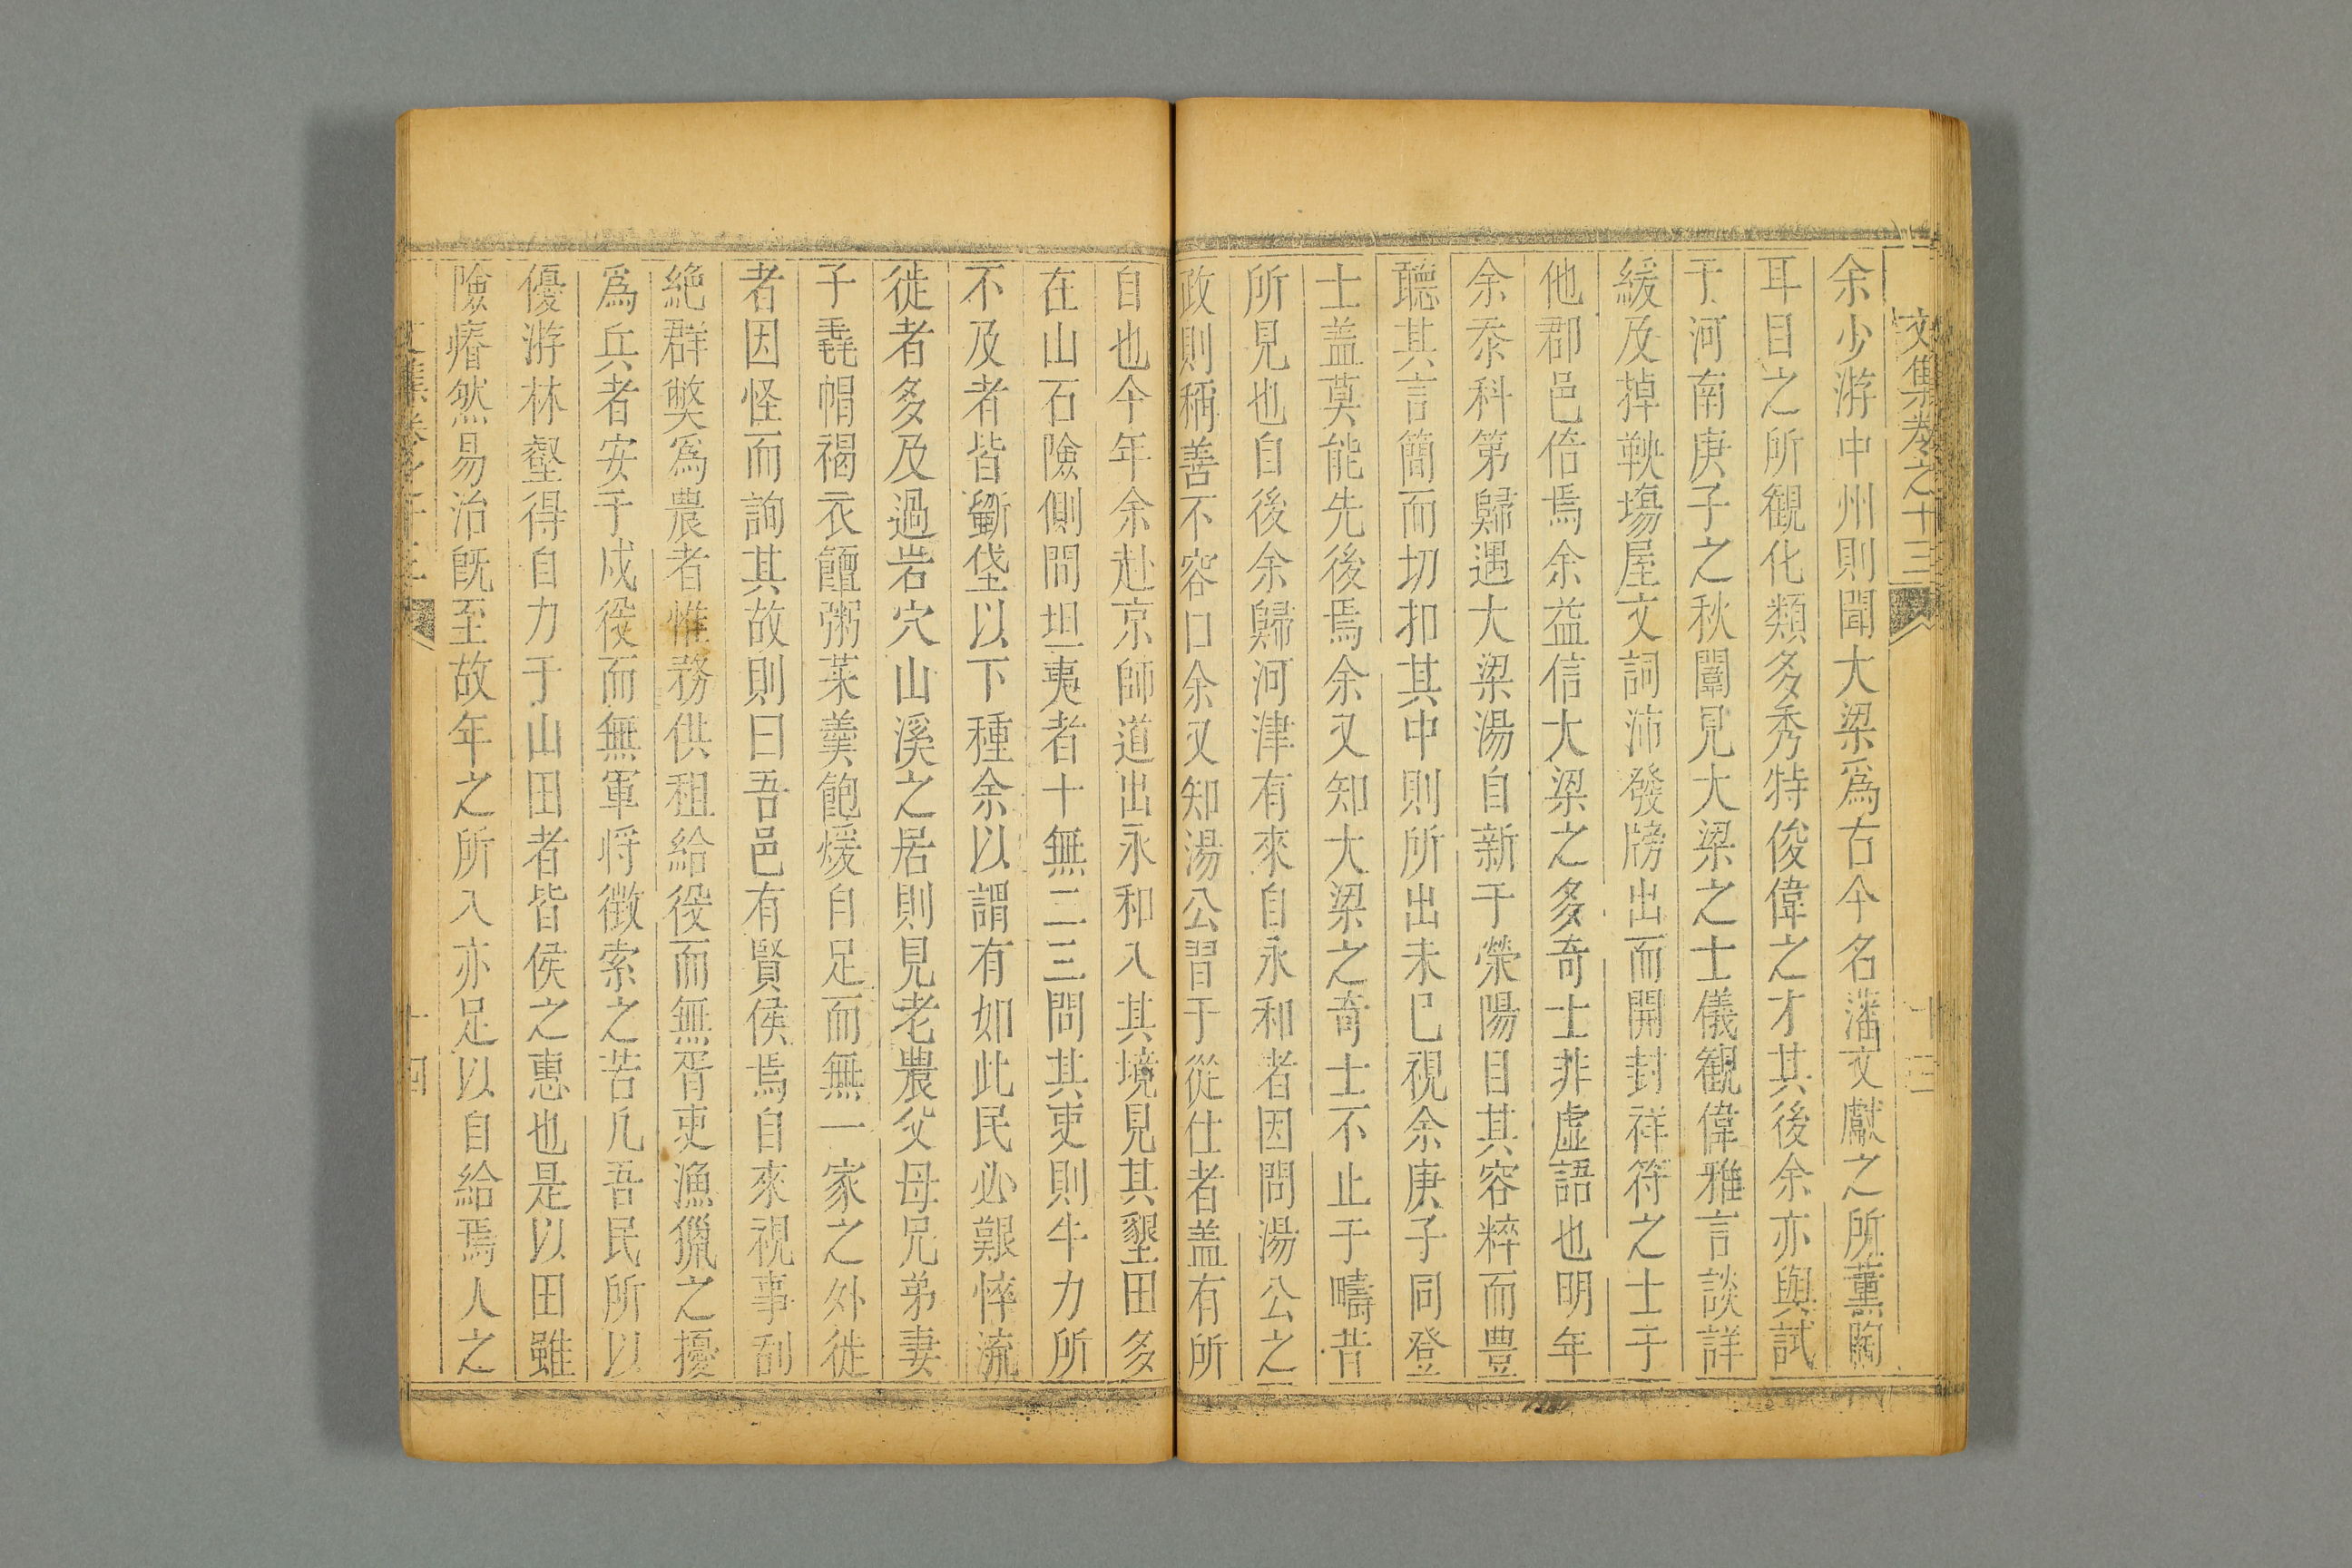 文集卷之十三
十三
余少游中州則聞大梁爲古今名藩文獻之所薰陶
耳目之所観化類多秀特俊偉之才其後余亦與試
于河南庚子之秋闈見大梁之士儀観偉雅言談詳
緩及掉鞅塲屋文詞沛發牓出而開封祥符之士于
他郡邑倍焉余益信大梁之多奇士非虚語也明年
余忝科第歸遇大梁湯自新于滎陽目其容粹而豊
聽其言簡而切扣其中則所出未已視余庚子同登
士盖莫能先後焉余又知大梁之奇士不止于疇昔
所見也自後余歸河津有來自永和者因問湯公之
政則稱善不容口余又知湯公習于從仕者盖有所
自也今年余赴京師道出永和入其境見其墾田多
在山石險側間坦夷者十無二三問其吏則牛力所
不及者皆斸垡以下種余以謂有如此民必艱悴流
徙者多及過岩穴山溪之居則見老農父母兄弟妻
子毳帽褐衣饘粥菜羹飽煖自足而無一家之外徙
者因怪而詢其故則曰吾邑有賢侯焉自來視事刮
絶群獘爲農者惟務供租給役而無胥吏漁獵之擾
爲兵者安于戍役而無軍将徴索之苦凡吾民所以
優游林壑得自力于山田者皆侯之惠也是以田雖
險瘠然易治既至故年之所入亦足以自給焉人之
文集卷之十三
十四